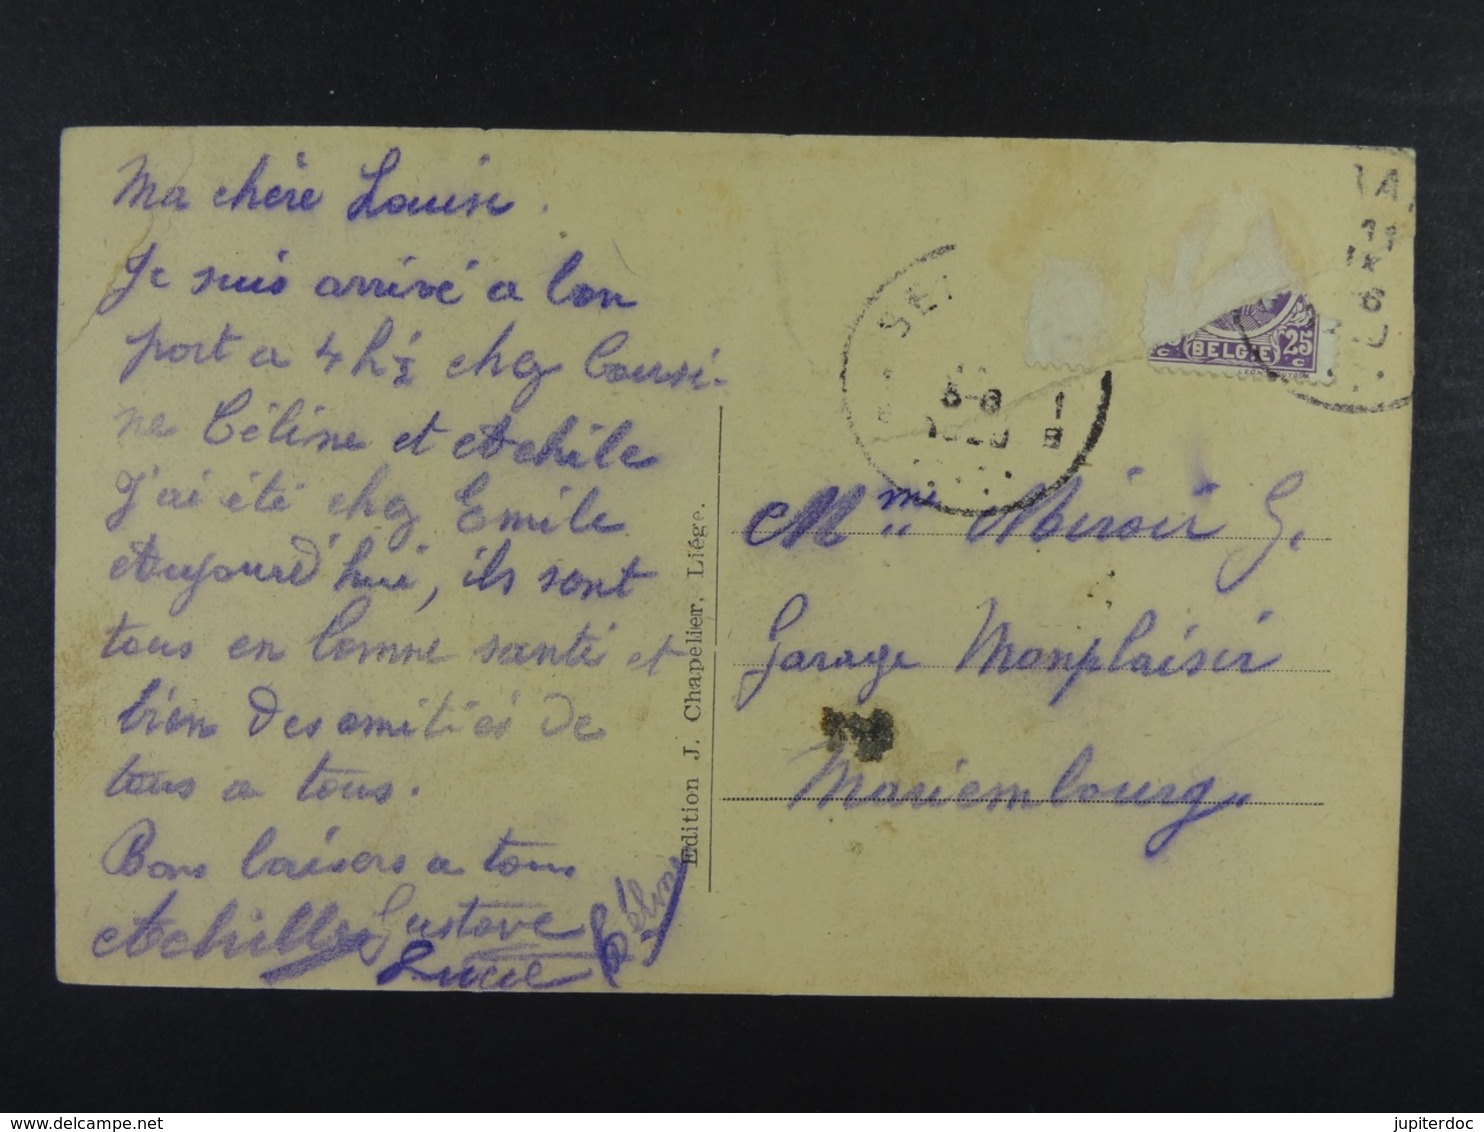 Ma chère Louise.
Je suis arrivé a bon
port a 4 h ½ chez Cousi-
ne Céline et Achile
J'ai été chez Emile
Aujourd'hui, ils sont
tous en bonne santé et
bien des amitiés de
tous a tous.
Bons baisers a tous
Achille Gustave Céline
Lucie
Edition J. Chapelier, Liége.
BELGIE 25
c c
6-8 1
B
11
IX
6
Mme Miroir G.
Garage Monplaisir
Mariembourg.
jupiterdoc
delcampe.net